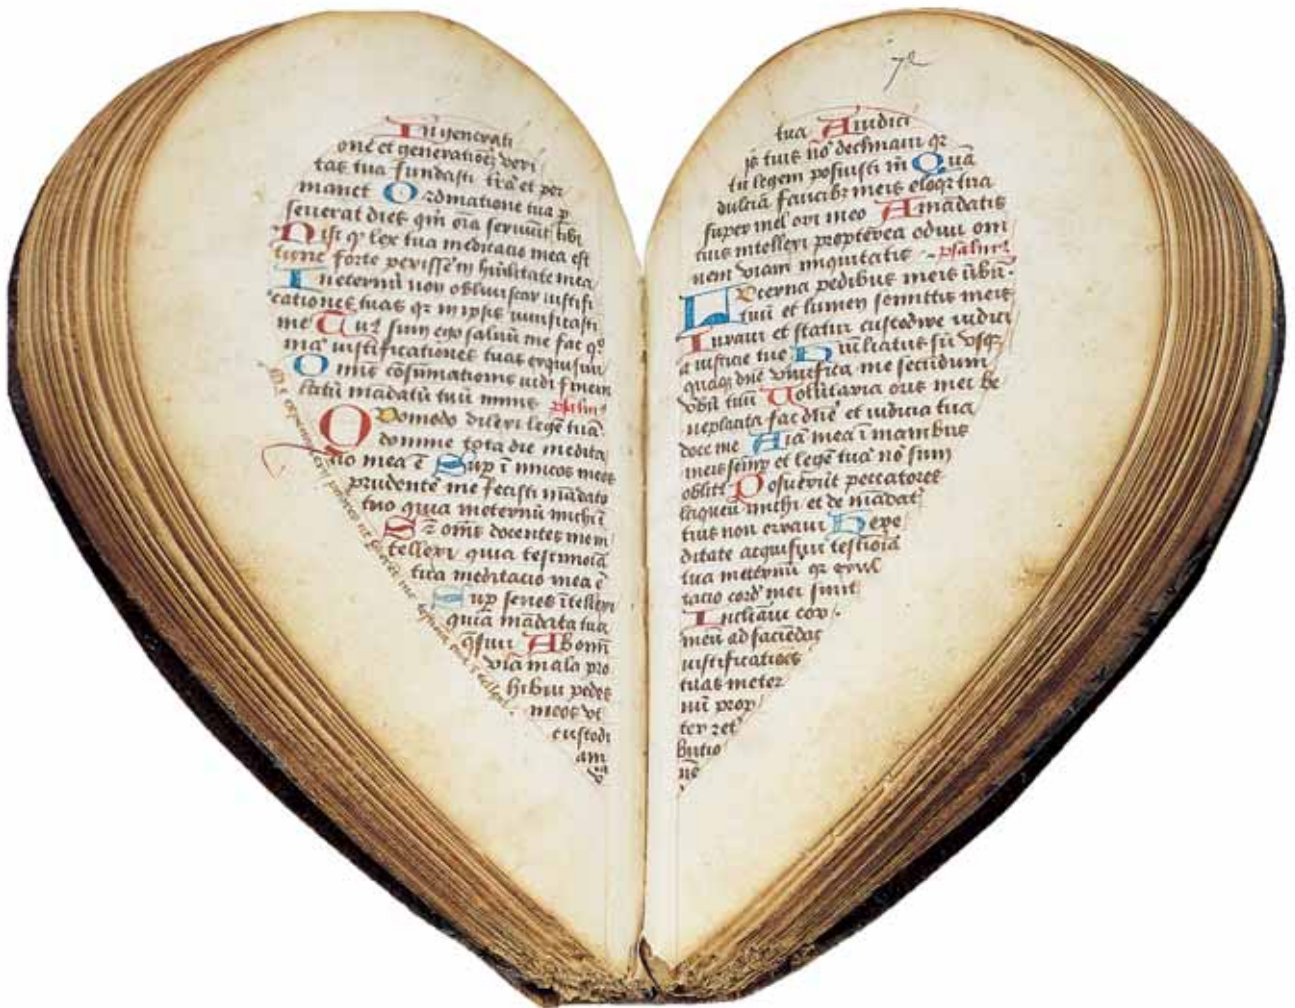 In generati
one et generationeʒ veri
tas tua fundasti trā et per
manet Ordinatione tua p
seuerat dies qm̄ oīa seruiūt tibi
Nisi qʒ lex tua meditacio mea est
tunc forte perissē in hūilitate mea
Ineternū non obliuiscar iustifi
cationes tuas qʒ in ipsis uiuificasti
me Tuʒ sum ego saluū me fac qʒ
iustificationes tuas exquisiui
Omnis cōsumationis uidi finem
latū mādatū tuū nimis psalmʒ
Quomodo dilexi legē tuā
domine tota die medita
tio mea ē Sup inimicos meos
prudentē me fecisti mādato
tuo quia ineternū michi ē
Sʒ omēs docentes me in
tellexi quia testimoīa
tua meditacio mea ē
Sup senes ītellexi
quia mādata tua
q̄siui Ab omni
via mala pro
hibui pedes
meos vt
custodi
am
me expectauerūt peccatores ut perderent me testimoīa tua ītellexi
72
tua A iudici
is tuis nō declinaui qʒ
tu legem posuisti m̄ Quā
dulcia faucibʒ meis eloqʒ tua
super mel ori meo A mādatis
tuis intellexi propterea odiui om
nem viam iniquitatis psalmʒ
Lucerna pedibus meis ūbū
tuū et lumen semitis meis
Iuraui et statui custodire iudici
a iusticie tue Hūiliatus sū vsqʒ
quaqʒ dn̄e viuifica me secūdum
vbū tuū Uolūtaria oris mei be
neplacita fac dn̄e et iudicia tua
doce me Aīa mea ī manibus
meis semp et legē tuā nō sum
oblitʒ Posuerūt peccatores
laqueū michi et de mādatʒ
tuis non erraui Here
ditate acquisiui testīoīa
tua ineternū qʒ exul
tacio cordʒ mei sunt
Inclinaui cor
meū ad faciēdas
iustificatiōes
tuas ineter
nū prop
ter ret
butio
nē